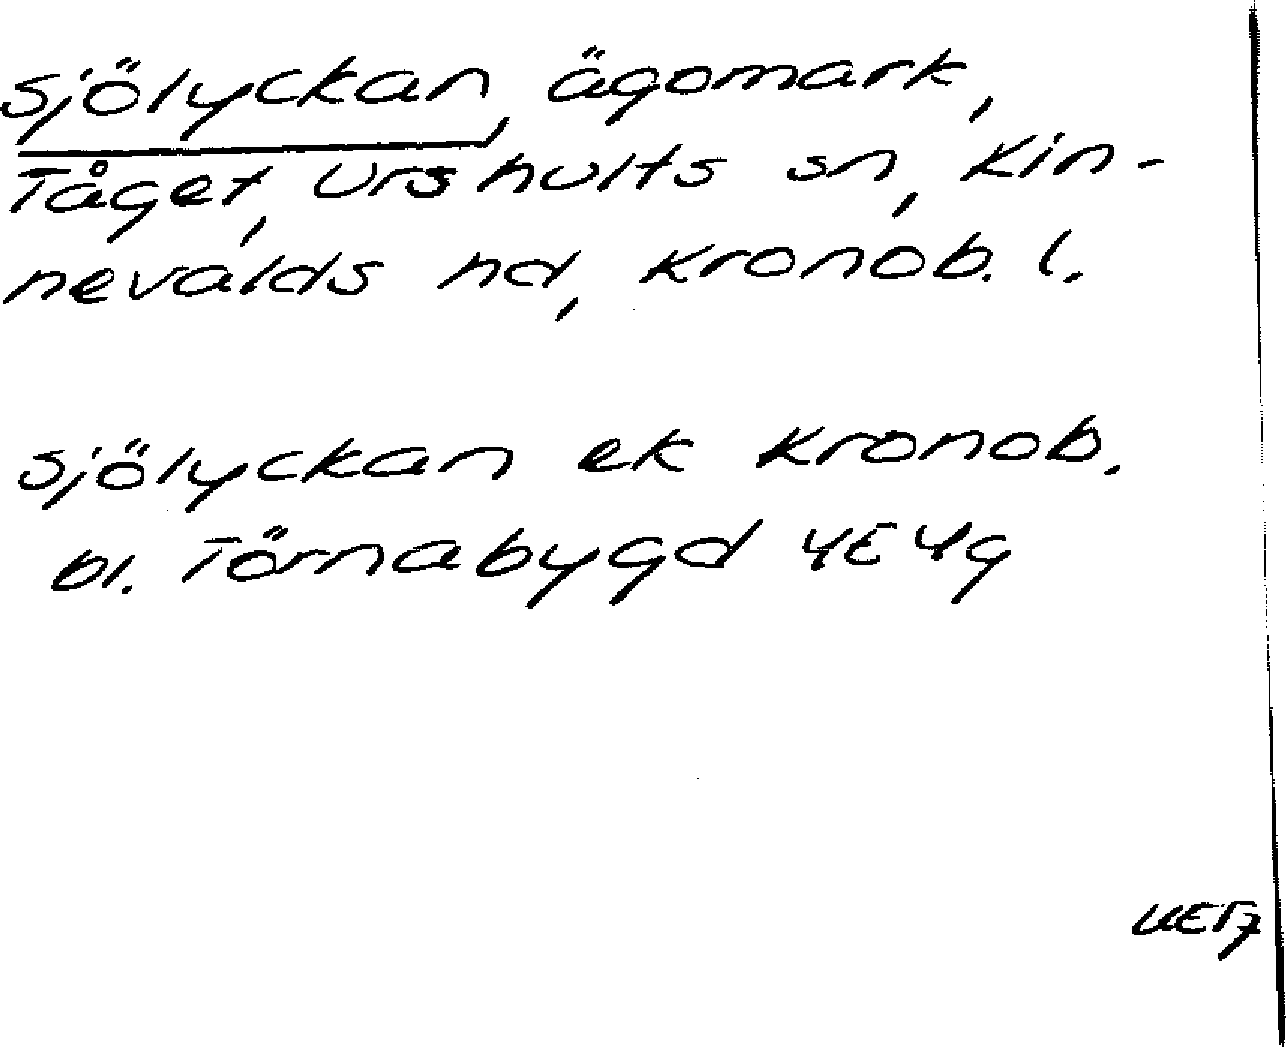 Sjölyckan, ägomark,
Tåget, Urshults sn, Kin-
nevalds hd, Kronob. l.
Sjölyckan ek Kronob.
bl. Törnabygd 4E4g